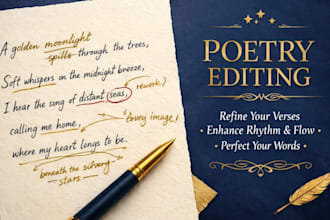 A golden moonlight
spills through the trees,
Soft whispers on the midnight breeze,
rework)
I hear the song of distant (seas,
calling me home,
lovey image!
where my heart longs to be.
beneath the silvery
stars
POETRY
EDITING
Refine Your Verses
• Enhance Rhythm & Flow •
Perfect Your Words •